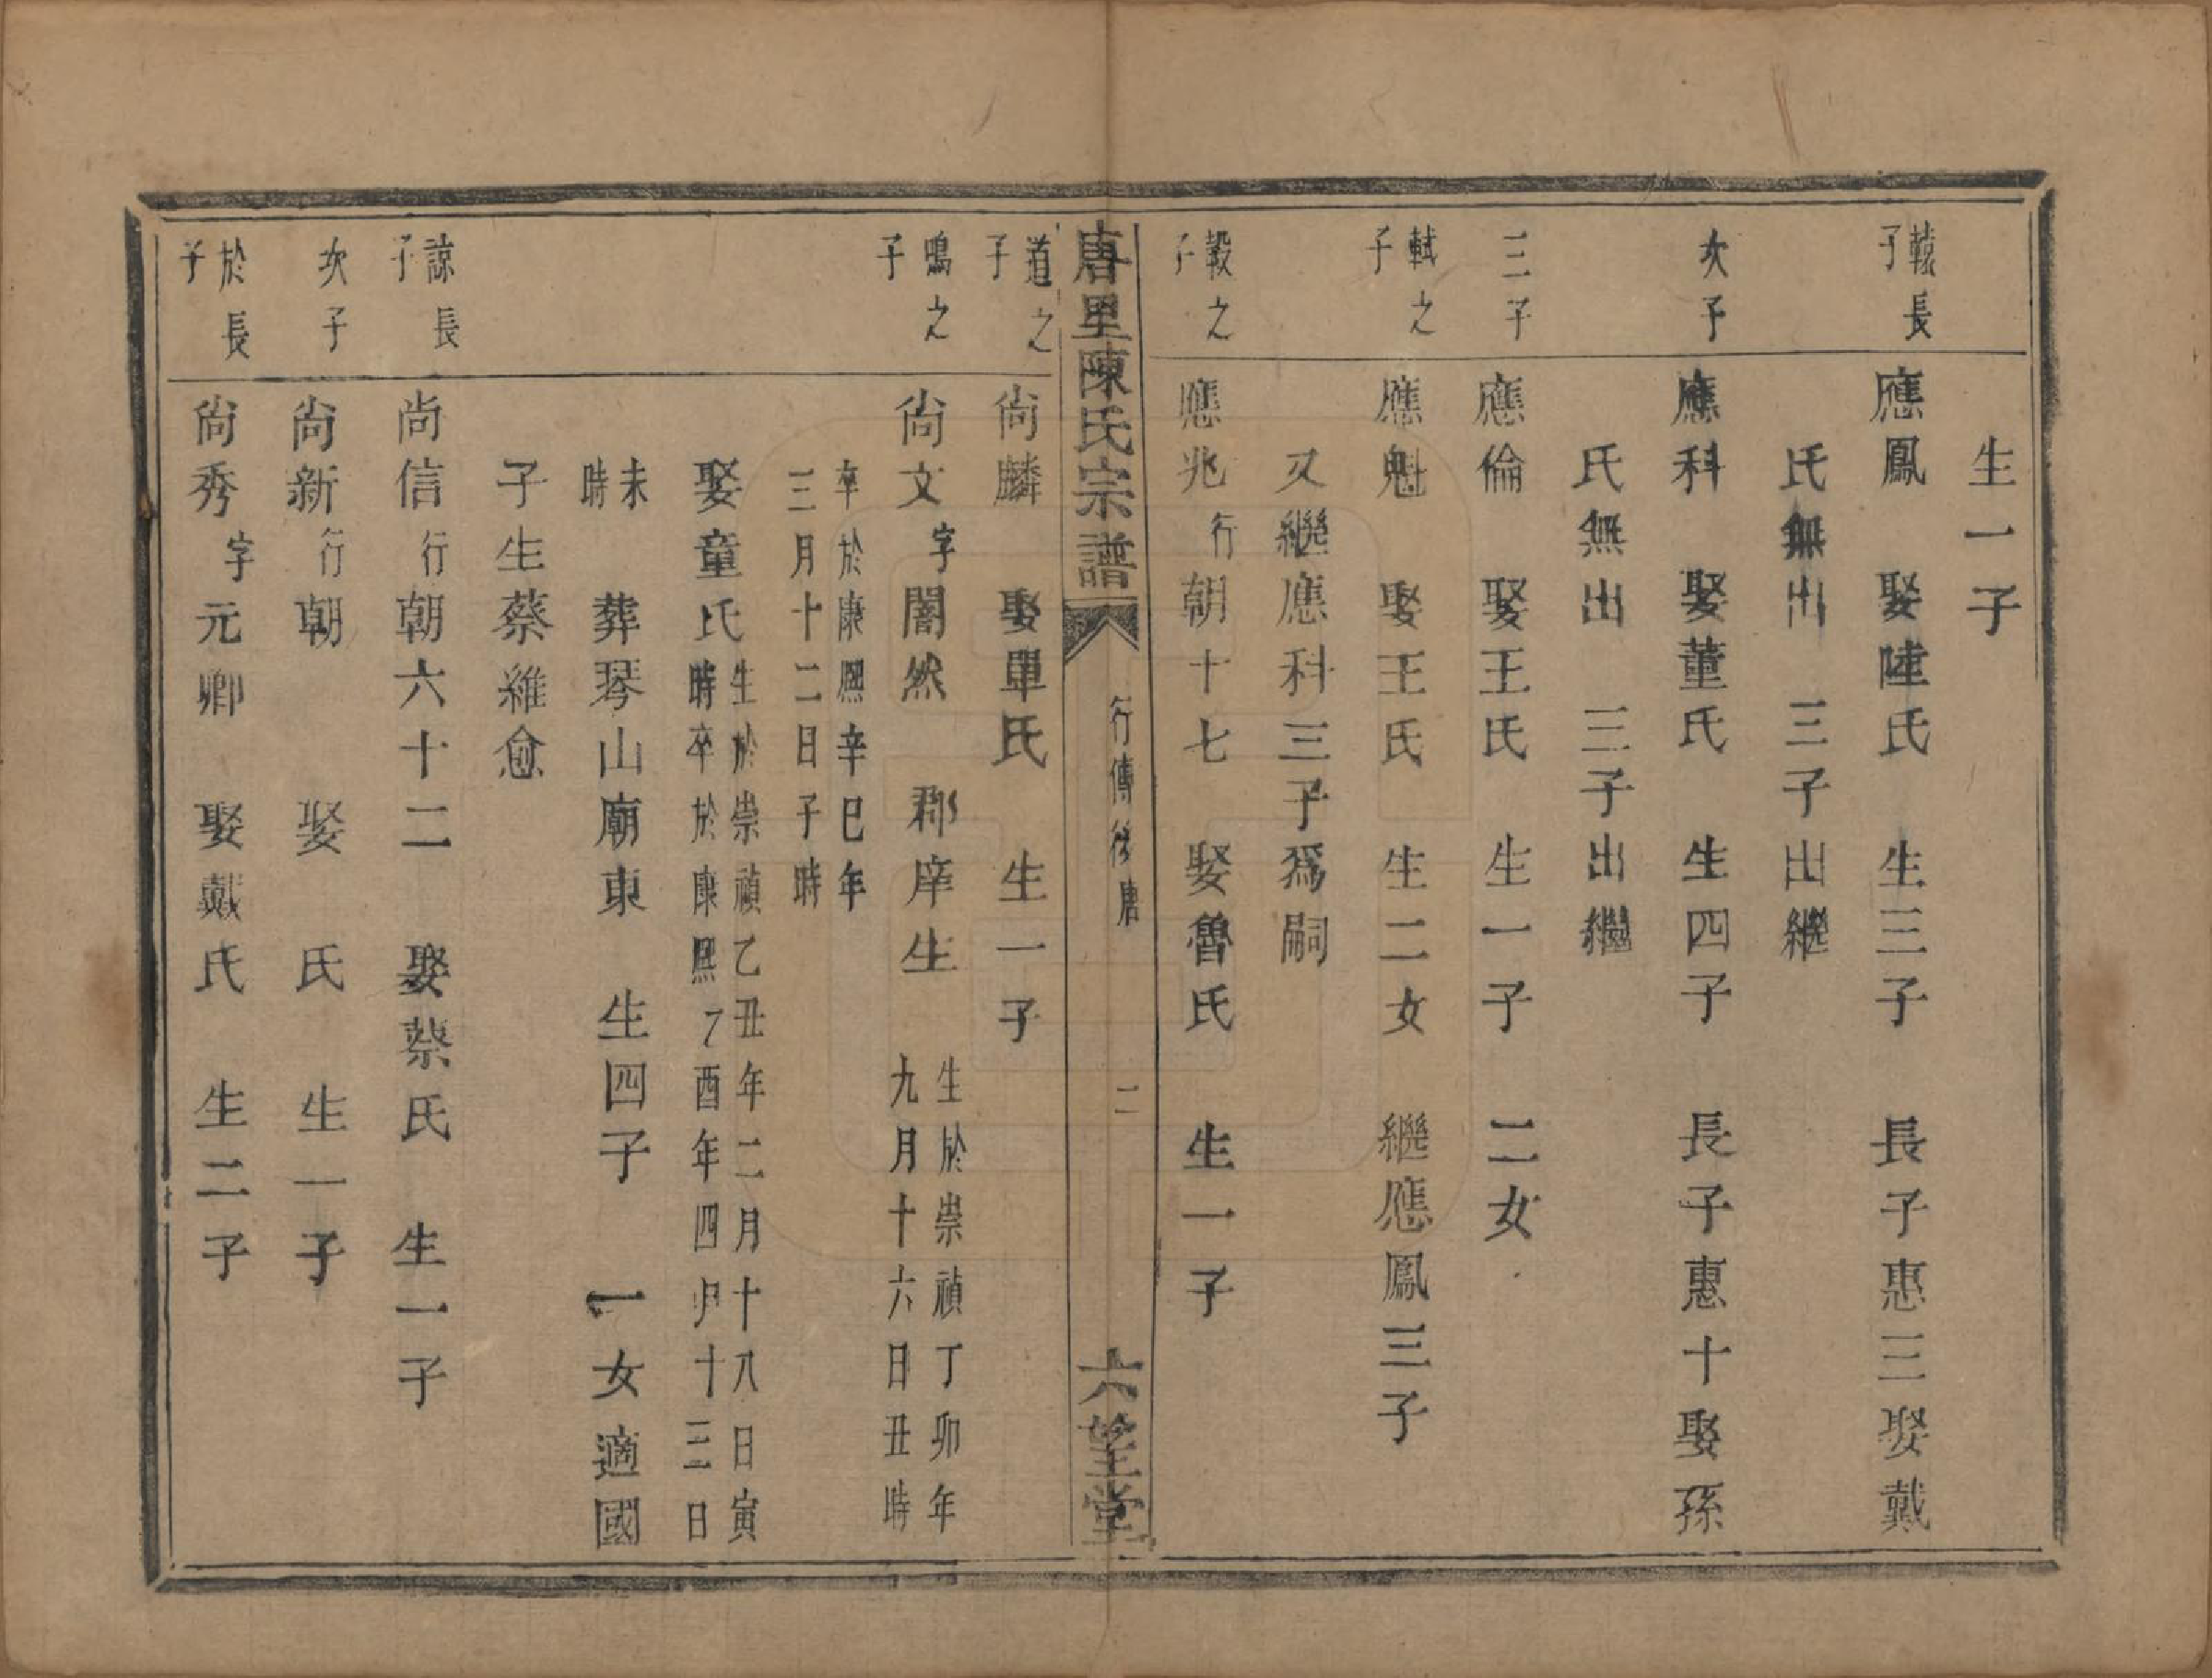 生一子
轅長子
應鳳　娶陸氏　生三子　長子惠三娶戴
氏無出　三子出繼
次子
應科　娶董氏　生四子　長子惠十娶孫
氏無出　三子出繼
三子
應倫　娶王氏　生一子　二女
軾之子
應魁　娶王氏　生二女　繼應鳳三子
又繼應科三子爲嗣
轂之子
應兆行朝十七　娶魯氏　生一子
唐里陳氏宗譜　行傳後唐　二　六望堂
道之子
尙麟　娶單氏　生一子
鳴之子
尙文字闇然　郡庠生　生於崇禎丁卯年
九月十六日丑時
卒於康熙辛巳年
三月十二日子時
娶童氏生於崇禎乙丑年二月十八日寅
時卒於康熙乙酉年四月十三日
未時　葬琴山廟東　生四子　一女適國
子生蔡維愈
諒長子
尚信行朝六十二　娶蔡氏　生一子
次子
尚新行朝　娶　氏　生一子
於長子
尙秀字元卿　娶戴氏　生二子